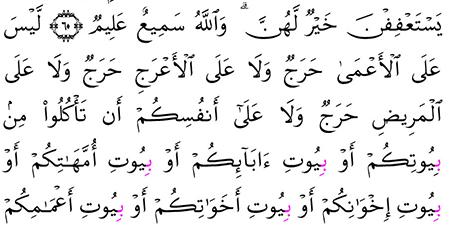 يَسْتَعْفِفْنَ خَيْرٌ لَّهُنَّ ۗ وَٱللَّهُ سَمِيعٌ عَلِيمٌ ﴿٦٥﴾ لَّيْسَ
عَلَى ٱلْأَعْمَىٰ حَرَجٌ وَلَا عَلَى ٱلْأَعْرَجِ حَرَجٌ وَلَا عَلَى
ٱلْمَرِيضِ حَرَجٌ وَلَا عَلَىٰٓ أَنفُسِكُمْ أَن تَأْكُلُوا۟ مِنۢ
بِيُوتِكُمْ أَوْ بِيُوتِ ءَابَآئِكُمْ أَوْ بِيُوتِ أُمَّهَـٰتِكُمْ أَوْ
بِيُوتِ إِخْوَٰنِكُمْ أَوْ بِيُوتِ أَخَوَٰتِكُمْ أَوْ بِيُوتِ أَعْمَـٰمِكُمْ